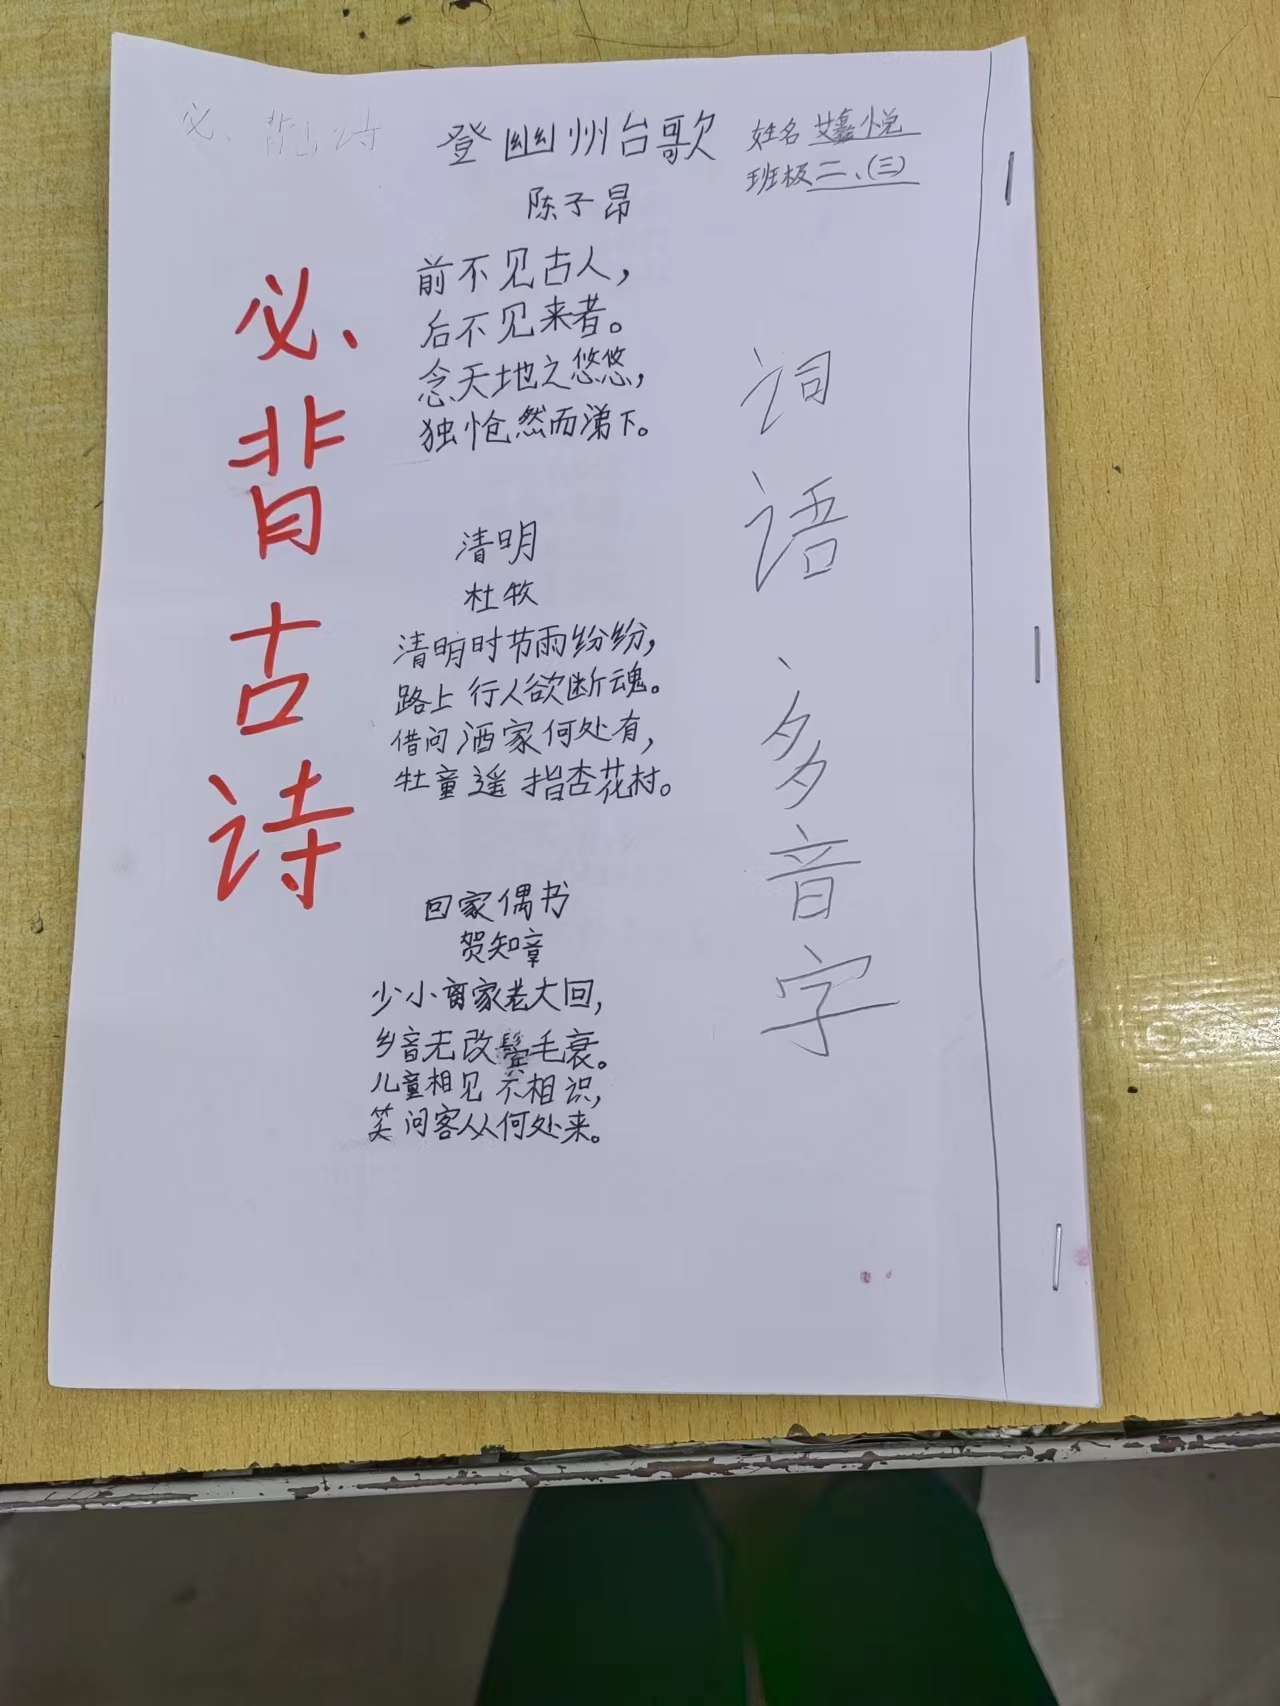 必背诗
登幽州台歌
姓名 艾鑫悦
班极 二、(三)
陈子昂
前不见古人，
后不见来者。
念天地之悠悠，
独怆然而涕下。
清明
杜牧
清明时节雨纷纷，
路上行人欲断魂。
借问酒家何处有，
牡童遥指杏花村。
回家偶书
贺知章
少小离家老大回，
乡音无改鬓毛衰。
儿童相见不相识，
笑问客从何处来。
必背古诗
词语、多音字